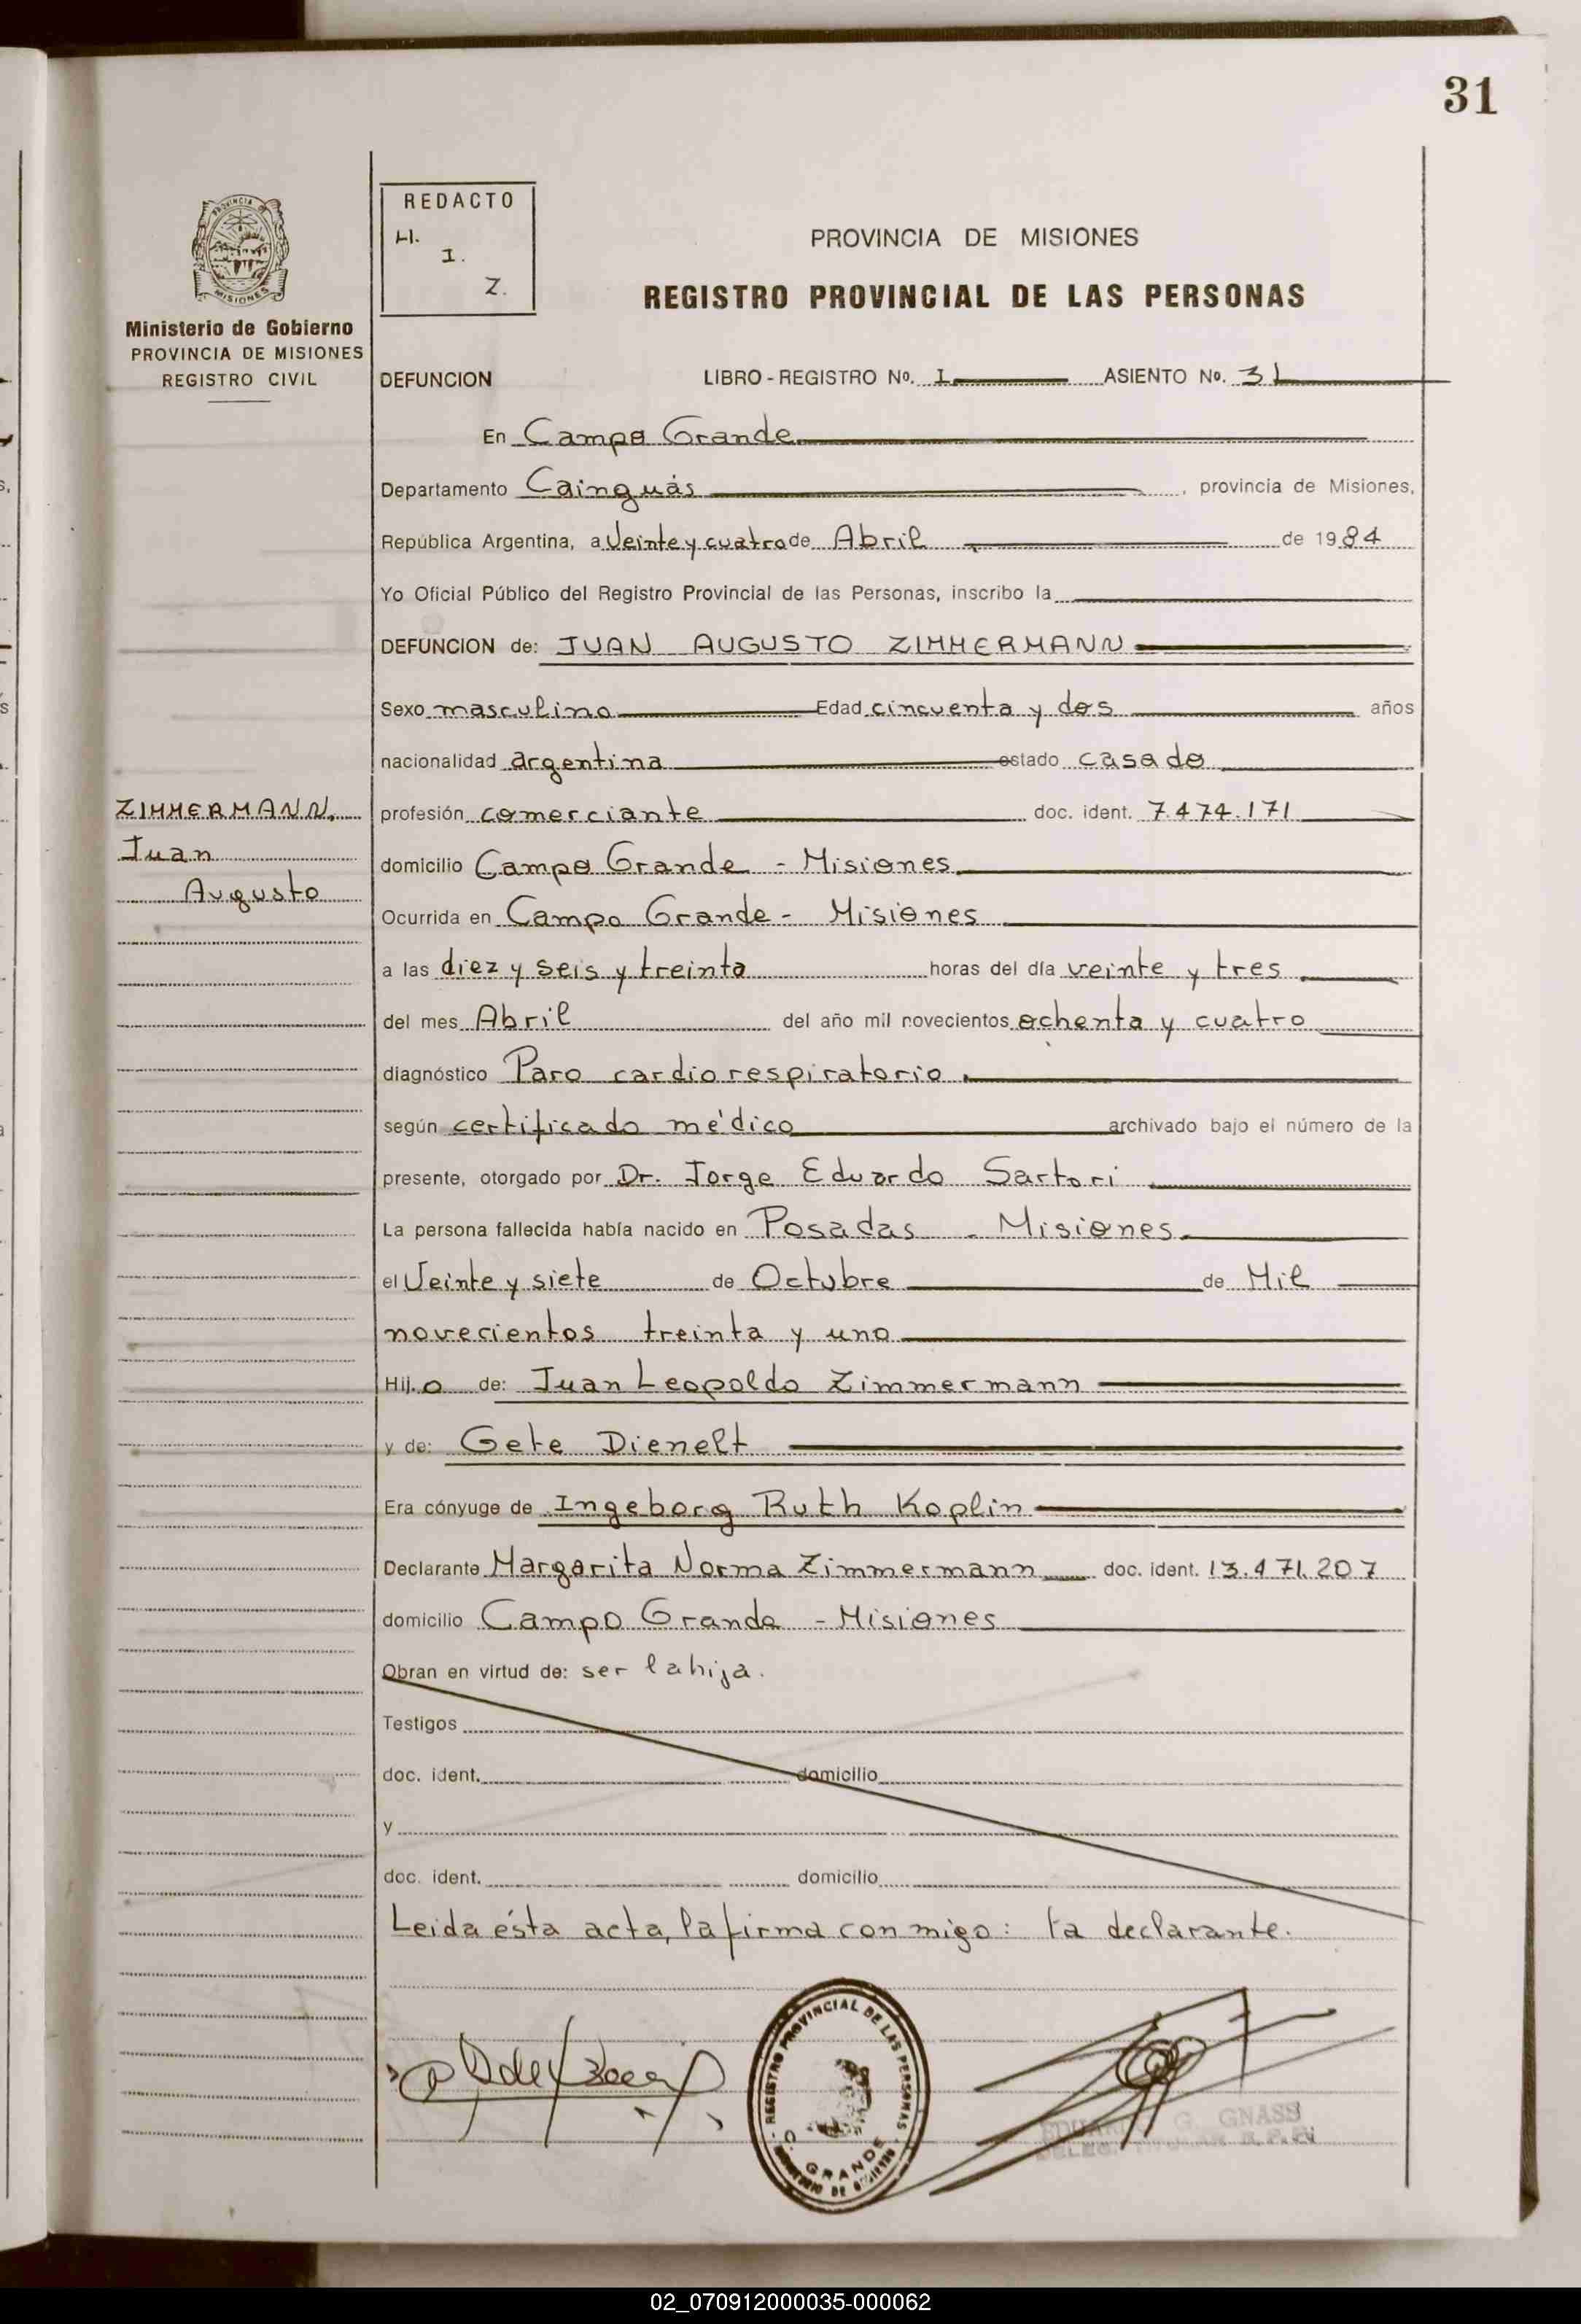 31
PROVINCIA DE
MISIONES
Ministerio de Gobierno
PROVINCIA DE MISIONES
REGISTRO CIVIL
REDACTO
H.
I.
Z.
PROVINCIA DE MISIONES
REGISTRO PROVINCIAL DE LAS PERSONAS
DEFUNCION LIBRO - REGISTRO No. I ASIENTO No. 31
En Campo Grande
Departamento Cainguás, provincia de Misiones,
República Argentina, a Veinte y cuatro de Abril de 1984
Yo Oficial Público del Registro Provincial de las Personas, inscribo la
DEFUNCION de: JUAN AUGUSTO ZIMMERMANN
Sexo masculino Edad cincuenta y dos años
nacionalidad argentina estado casado
ZIMMERMANN,
Juan
Augusto
profesión comerciante doc. ident. 7.474.171
domicilio Campo Grande - Misiones
Ocurrida en Campo Grande - Misiones
a las diez y seis y treinta horas del día veinte y tres
del mes Abril del año mil novecientos ochenta y cuatro
diagnóstico Paro cardiorespiratorio.
según certificado médico archivado bajo el número de la
presente, otorgado por Dr. Jorge Eduardo Sartori
La persona fallecida había nacido en Posadas - Misiones
el Veinte y siete de Octubre de Mil
novecientos treinta y uno
Hijo de: Juan Leopoldo Zimmermann
y de: Gete Dienelt
Era cónyuge de Ingeborg Ruth Koplin
Declarante Margarita Norma Zimmermann doc. ident. 13.471.207
domicilio Campo Grande - Misiones
Obran en virtud de: ser la hija.
Testigos
doc. ident. domicilio
y
doc. ident. domicilio
Leida ésta acta, la firma con migo: la declarante.
REGISTRO PROVINCIAL DE LAS PERSONAS
C. GRANDE
MINISTERIO DE GOBIERNO
G. GNASS
02_070912000035-000062